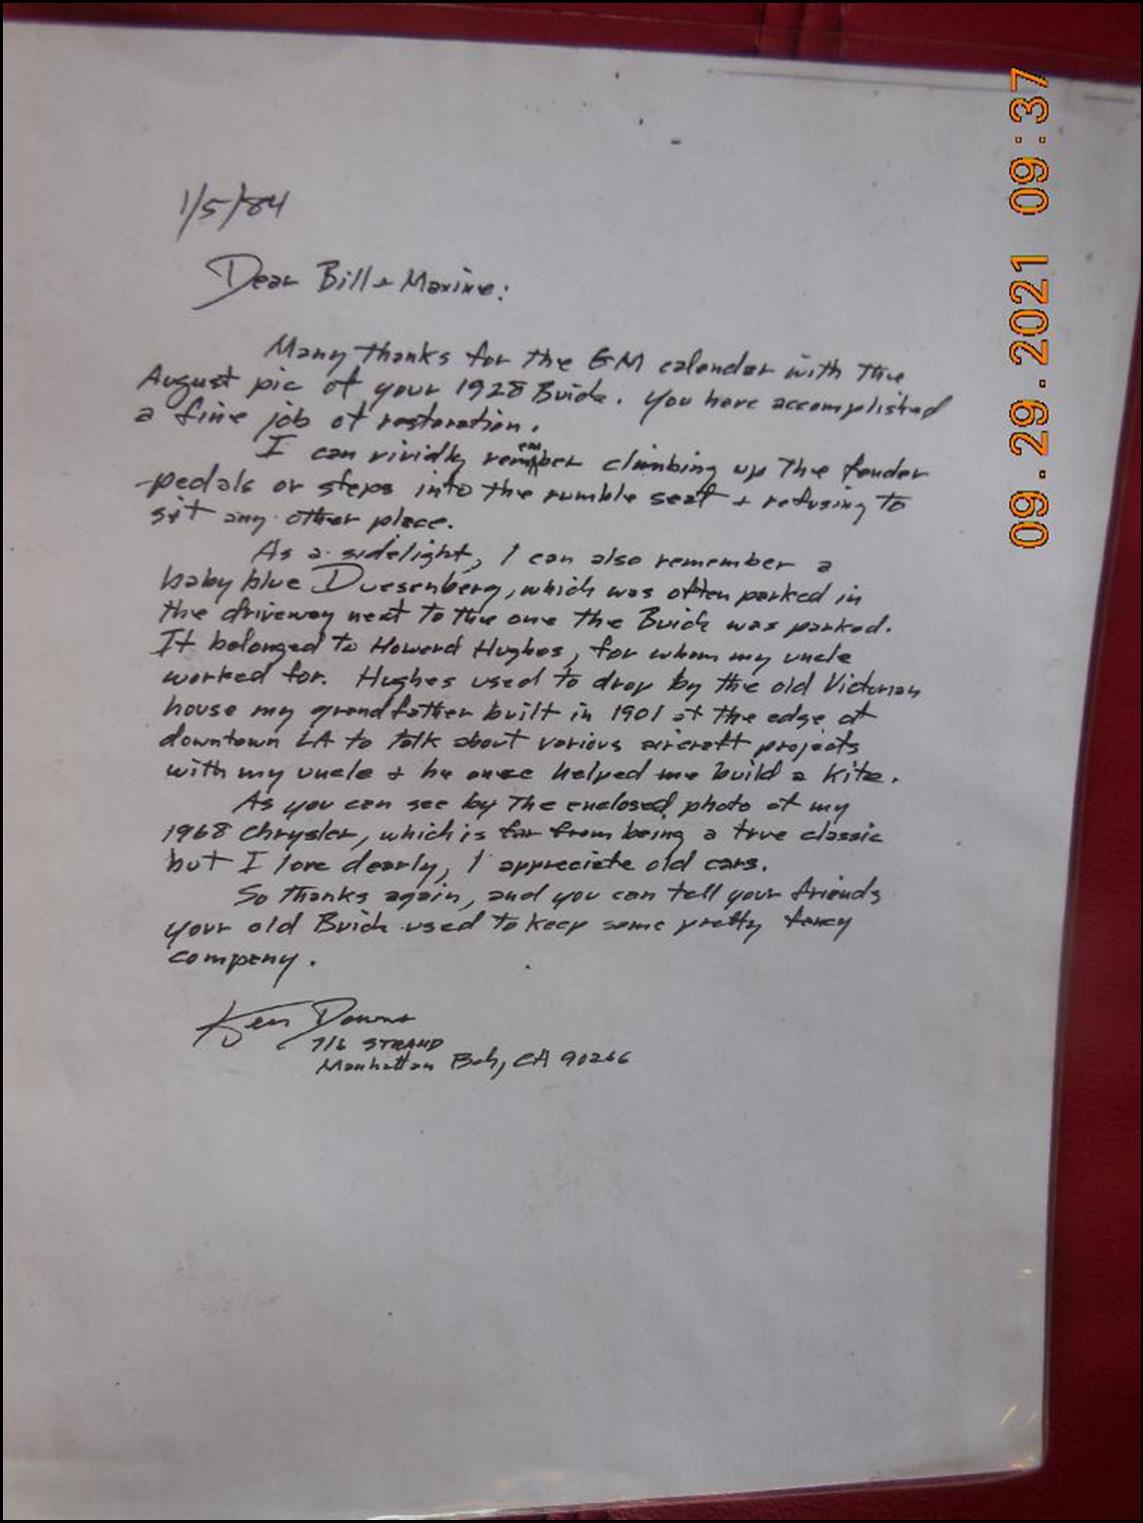 1/5/84
Dear Bill + Maxine:
Many thanks for the GM calendar with the
August pic of your 1928 Buick. You have accomplished
a fine job of restoration.
I can vividly remember climbing up the fender
pedals or steps into the rumble seat + refusing to
sit any other place.
As a sidelight, I can also remember a
baby blue Duesenberg, which was often parked in
the driveway next to the one the Buick was parked.
It belonged to Howard Hughes, for whom my uncle
worked for. Hughes used to drop by the old Victorian
house my grandfather built in 1901 at the edge of
downtown LA to talk about various aircraft projects
with my uncle + he once helped me build a kite.
As you can see by the enclosed photo of my
1968 Chrysler, which is far from being a true classic
but I love dearly, I appreciate old cars.
So thanks again, and you can tell your friends
your old Buick used to keep some pretty fancy
company.
Ken Downs
716 STRAND
Manhattan Bch, CA 90266
09.29.2021 09:37